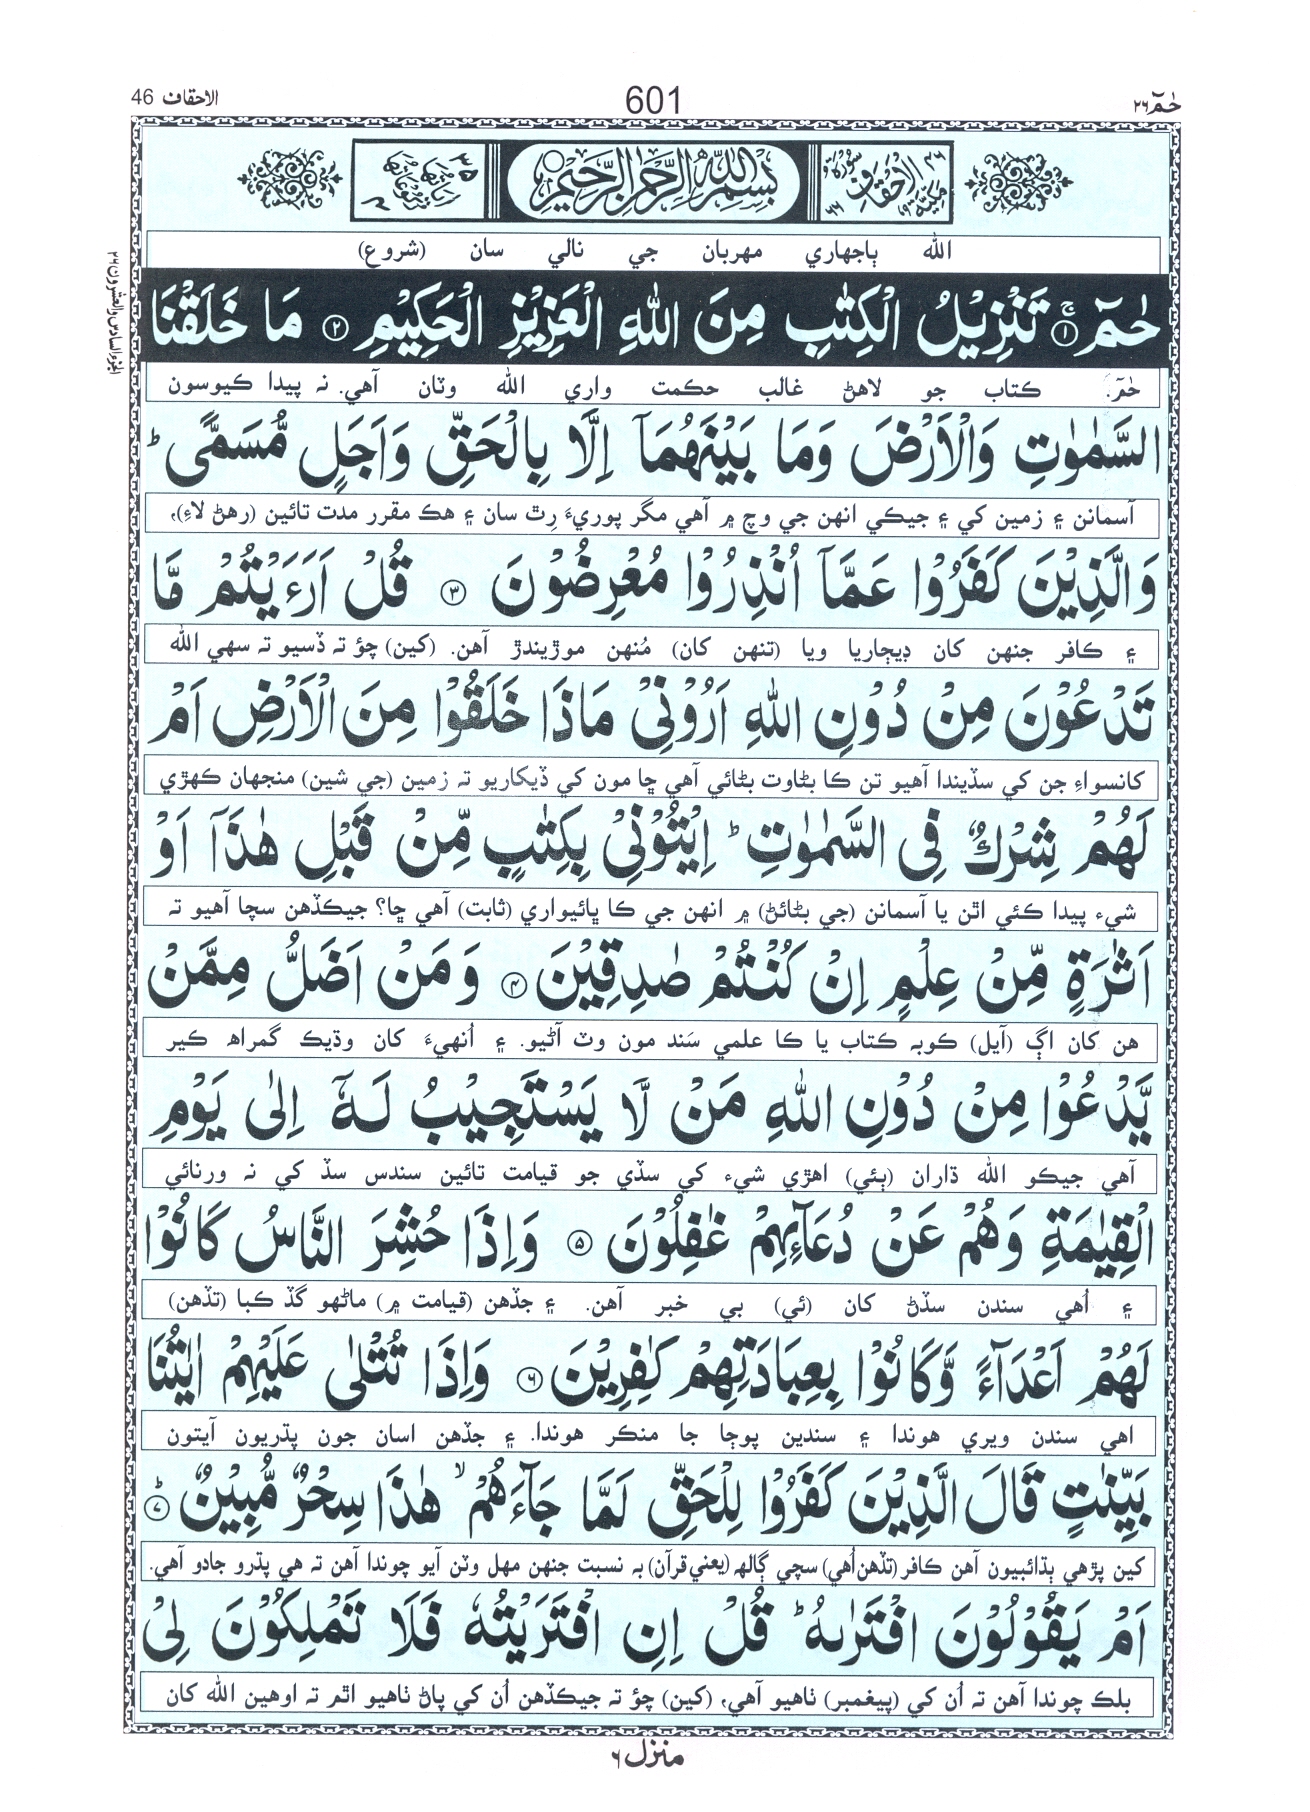 حٰمٓ ٢٦
601
الاحقاف 46
سُوْرَةُ الْاَحْقَافِ مَكِّيَّةٌ
بِسْمِ اللّٰهِ الرَّحْمٰنِ الرَّحِيْمِ
اٰيَاتُهَا ٣٥
الله ٻاجهاري مهربان جي نالي سان (شروع)
حٰمٓ ۚ‏ ﴿١﴾ تَنْزِيْلُ الْكِتٰبِ مِنَ اللّٰهِ الْعَزِيْزِ الْحَكِيْمِ ﴿٢﴾ مَا خَلَقْنَا
حٰمٓ. ڪتاب جو لاهڻ غالب حڪمت واري الله وٽان آهي. نہ پيدا ڪيوسون
السَّمٰوٰتِ وَالْاَرْضَ وَمَا بَيْنَهُمَاۤ اِلَّا بِالْحَقِّ وَاَجَلٍ مُّسَمًّى ؕ
آسمانن ۽ زمين کي ۽ جيڪي انهن جي وچ ۾ آهي مگر پوريءَ رِٿ سان ۽ هڪ مقرر مدت تائين (رهڻ لاءِ)،
وَالَّذِيْنَ كَفَرُوْا عَمَّاۤ اُنْذِرُوْا مُعْرِضُوْنَ ﴿٣﴾ قُلْ اَرَءَيْتُمْ مَّا
۽ ڪافر جنهن کان ڊيڄاريا ويا (تنهن کان) مُنهن موڙيندڙ آهن. (کين) چؤ تہ ڏسيو تہ سهي الله
تَدْعُوْنَ مِنْ دُوْنِ اللّٰهِ اَرُوْنِيْ مَاذَا خَلَقُوْا مِنَ الْاَرْضِ اَمْ
کانسواءِ جن کي سڏيندا آهيو تن ڪا بڻاوت بڻائي آهي ڇا مون کي ڏيکاريو تہ زمين (جي شين) منجهان ڪهڙي
لَهُمْ شِرْكٌ فِي السَّمٰوٰتِ ؕ اِيْتُوْنِيْ بِكِتٰبٍ مِّنْ قَبْلِ هٰذَاۤ اَوْ
شيء پيدا ڪئي اٿن يا آسمانن (جي بڻائڻ) ۾ انهن جي ڪا ڀائيواري (ثابت) آهي ڇا؟ جيڪڏهن سچا آهيو تہ
اَثٰرَةٍ مِّنْ عِلْمٍ اِنْ كُنْتُمْ صٰدِقِيْنَ ﴿٤﴾ وَمَنْ اَضَلُّ مِمَّنْ
هن کان اڳ (آيل) ڪوبہ ڪتاب يا ڪا علمي سَند مون وٽ آڻيو. ۽ اُنهيءَ کان وڌيڪ گمراهہ ڪير
يَّدْعُوْا مِنْ دُوْنِ اللّٰهِ مَنْ لَّا يَسْتَجِيْبُ لَهٗۤ اِلٰى يَوْمِ
آهي جيڪو الله ڌاران (ٻئي) اهڙي شيء کي سڏي جو قيامت تائين سندس سڏ کي نہ ورنائي
الْقِيٰمَةِ وَهُمْ عَنْ دُعَآئِهِمْ غٰفِلُوْنَ ﴿٥﴾ وَاِذَا حُشِرَ النَّاسُ كَانُوْا
۽ اُهي سندن سڏڻ کان (ئي) بي خبر آهن. ۽ جڏهن (قيامت ۾) ماڻهو گڏ ڪبا (تڏهن)
لَهُمْ اَعْدَآءً وَّكَانُوْا بِعِبَادَتِهِمْ كٰفِرِيْنَ ﴿٦﴾ وَاِذَا تُتْلٰى عَلَيْهِمْ اٰيٰتُنَا
اهي سندن ويري هوندا ۽ سندين پوڄا جا منڪر هوندا. ۽ جڏهن اسان جون پڌريون آيتون
بَيِّنٰتٍ قَالَ الَّذِيْنَ كَفَرُوْا لِلْحَقِّ لَمَّا جَآءَهُمْ ۙ هٰذَا سِحْرٌ مُّبِيْنٌ ؕ ﴿٧﴾
کين پڙهي ٻڌائبيون آهن ڪافر (تڏهن اُهي) سچي ڳالهہ (يعني قرآن) بہ نسبت جنهن مهل وٽن آيو چوندا آهن تہ هي پڌرو جادو آهي.
اَمْ يَقُوْلُوْنَ افْتَرٰىهُ ؕ قُلْ اِنِ افْتَرَيْتُهٗ فَلَا تَمْلِكُوْنَ لِيْ
بلڪ چوندا آهن تہ اُن کي (پيغمبر) ٺاهيو آهي، (کين) چؤ تہ جيڪڏهن اُن کي پاڻ ٺاهيو اٿم تہ اوهين الله کان
منزل ٦
الجزء السادس والعشرون (٢٦)